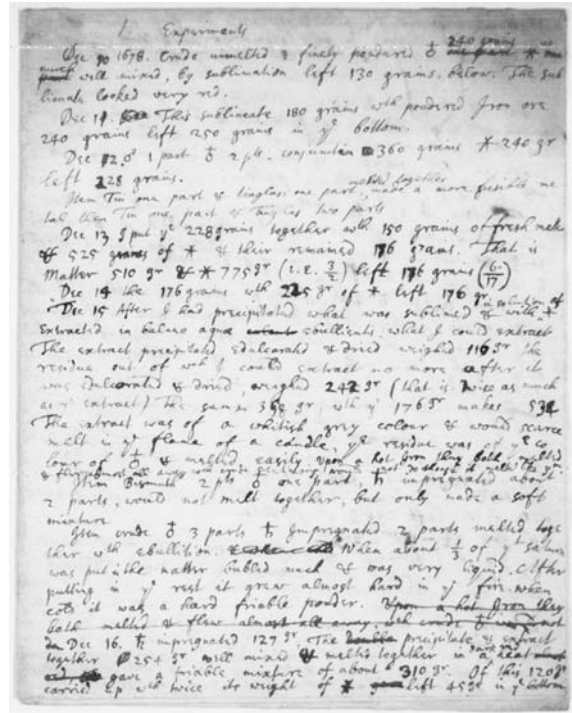 Experiments
Dec 10 1678. Crude unmelted & finely poudered ♁ 240 grains
well mixed, by sublimation left 130 grains below. The sub
limate looked very red.
Dec 11. This sublimate 180 grains wth poudered Iron ore
240 grains left 250 grains in ye bottom.
Dec 12. ♂ 1 part ♁ 2 pts. 360 grains ✶ 240 gr
left 228 grains.
Item Tin one part & tinglass one part, melted together made a more fusible me
tal then Tin one part & tinglas two parts
Dec 13 I put ye 228 grains together wth 150 grains of fresh
& 525 grains of ✶ & their remained 176 grams. That is
Matter 510 gr & ✶ 775 gr (i.e. 3/2) left 176 grains (6/17)
Dec 14 the 176 grains wth 225 gr of ✶ left 176 gr
Dec 15 After I had precipitated what was sublimed &
Extracted in balneo aquæ ebullientis what I could extract
The extract precipitated edulcorated & dried weighed 116 gr the
residue out of wch I could extract no more after it
was edulcorated & dried, weighed 242 gr (that is twice as much
as ye extract) The summ 358 gr, wth ye 176 gr makes 534
The extract was of a whitish grey colour & would scarce
melt in ye flame of a candle, ye residue was of ye co
lour of ♁ & melted easily upon a hot Iron they both melted
& flew almost all away
Item Bismuth 2 pts ♁ one part, ♄ impregnated about
2 parts, would not melt together, but only made a soft
mixture
Item crude ♁ 3 parts ♄ Impregnated 2 parts melted toge
ther wth ebullition. When about 1/3 of ye saturn
was put in the matter bubled much & was very liquid. After
putting in ye rest it grew almost hard in ye fire. when
cold it was a hard friable pouder. Upon a hot Iron they
both melted & flew almost all away
Dec 16. ♄ impregnated 127 gr. The precipitate & extract
together 254 gr well mixed & melted together in a
gave a friable mixture of about 310 gr. Of this 120 gr
carried up wth twice its weight of ✶ left 45 gr in ye bottom